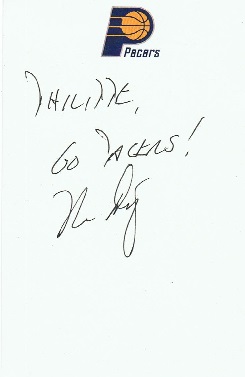 Pacers
PHILIPPE,
GO PACERS!